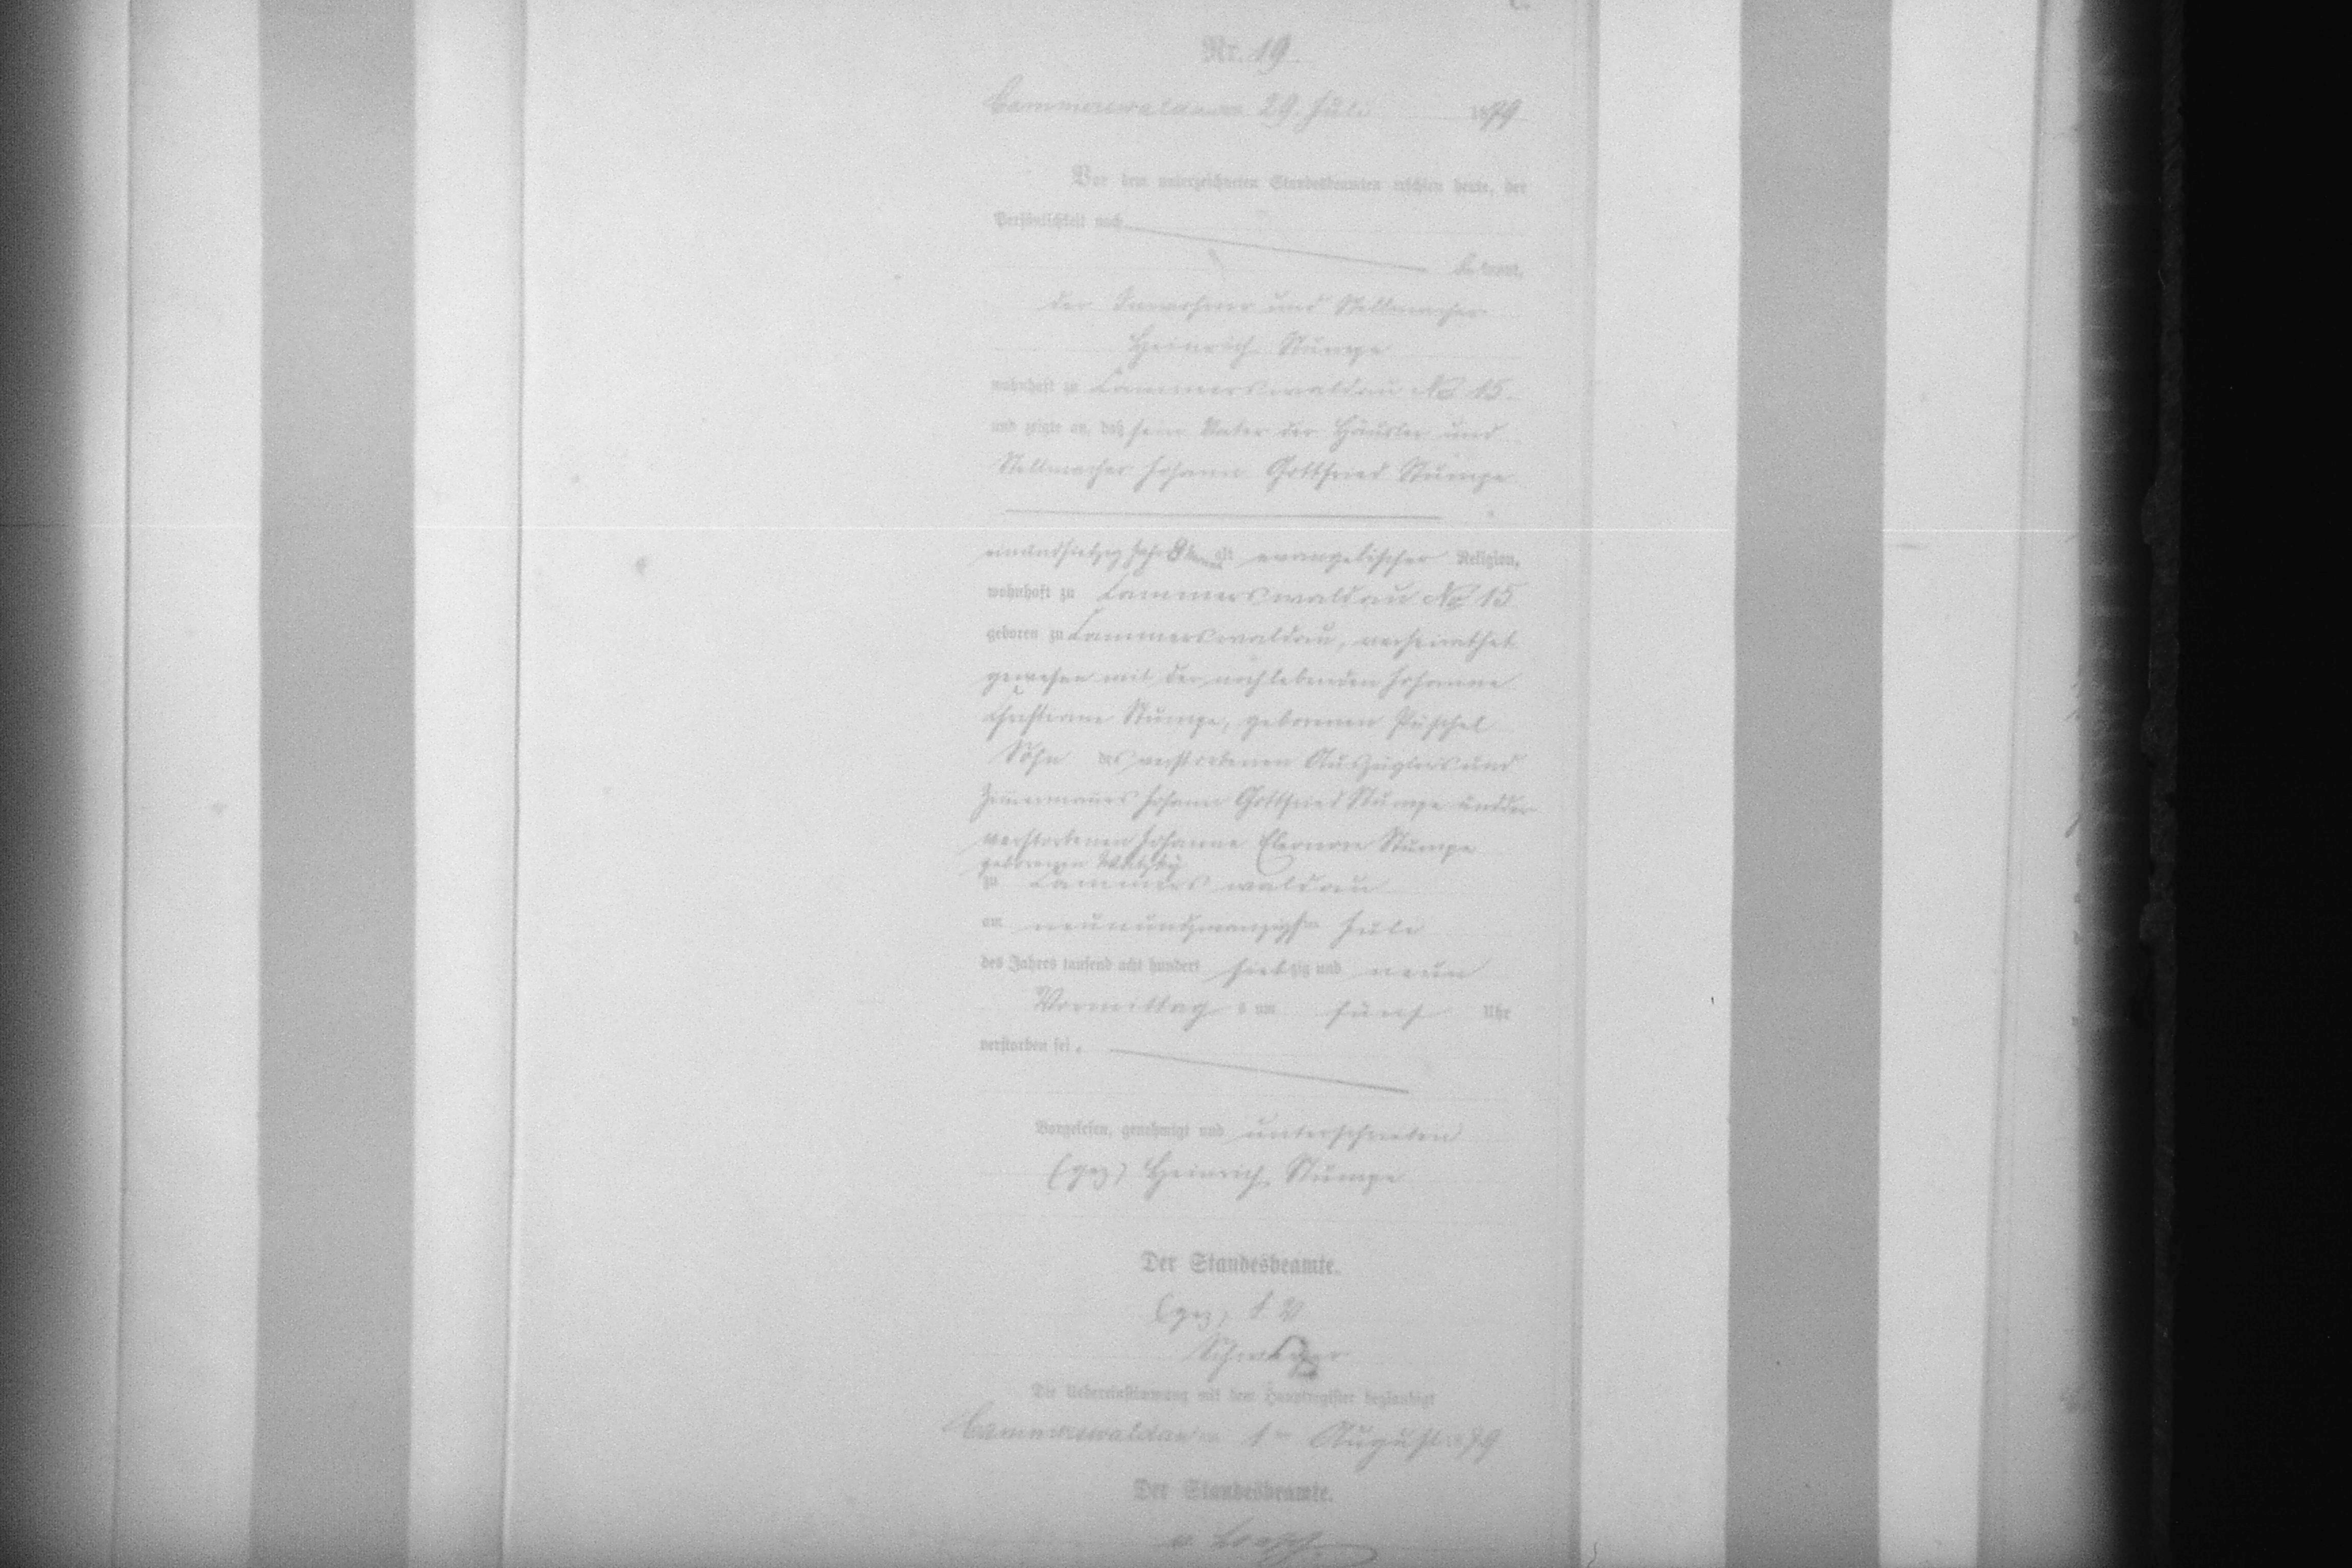 Nr. 19.
Cammerswaldau am 29. Juli 1879
Vor dem unterzeichneten Standesbeamten erschien heute, der
Persönlichkeit nach
bekannt,
der Inwohner und Stellmacher
Heinrich Stumpe
wohnhaft zu Cammerswaldau No 15.
und zeigte an, daß sein Vater der Häusler und
Stellmacher Johann Gottfried Stumpe
einundsiebzig Jahr 8 alt evangelischer Religion,
wohnhaft zu Cammerswaldau No 15
geboren zu Cammerswaldau, verheirathet
gewesen mit der noch lebenden Johanne
Christiane Stumpe, geborenen Püschel
Sohn des verstorbenen Auszüglers und
Zimmermanns Johann Gottfried Stumpe und der
verstorbenen Johanne Eleonore Stumpe
geborenen
zu Cammerswaldau
am neunundzwanzigsten Juli
des Jahres tausend acht hundert siebzig und neun
Vormittags um fünf Uhr
verstorben sei.
Vorgelesen, genehmigt und unterschrieben
(gez) Heinrich Stumpe
Der Standesbeamte.
(gez) I. V.
Die Uebereinstimmung mit dem Hauptregister beglaubigt
Cammerswaldau am 1ten August 1879
Der Standesbeamte.